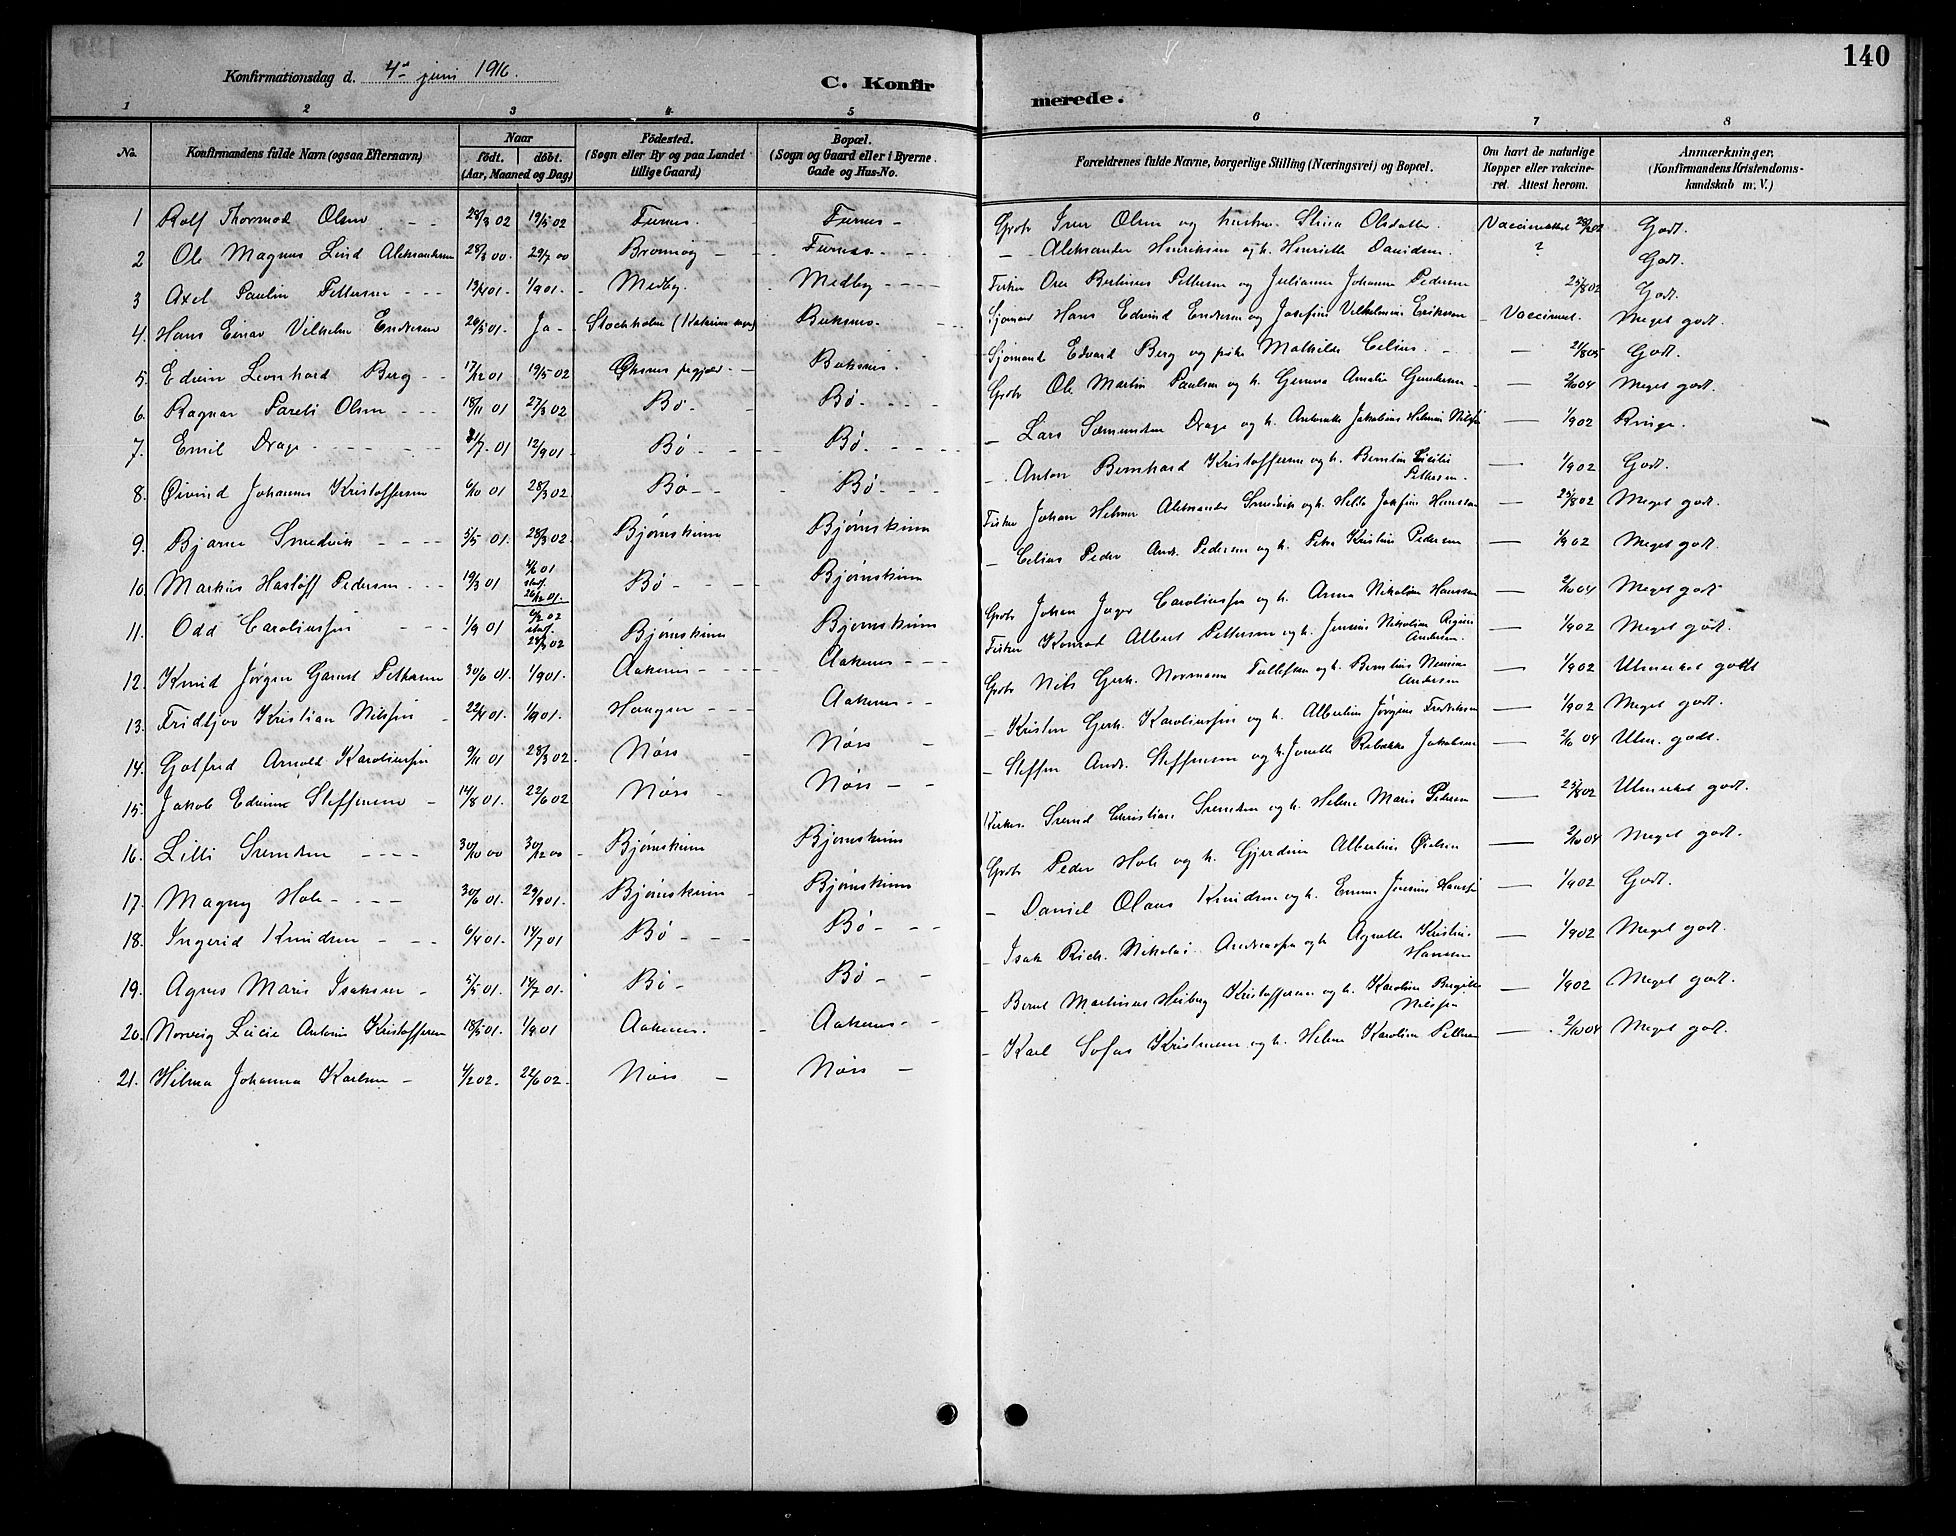 140
Konfirmationsdag d. 4de juni 1916.
C. Konfirmerede.
1 2 3 4 5 6 7 8
No. Konfirmandens fulde Navn (ogsaa Efternavn) Naar födt. döbt. (Aar, Maaned og Dag) Födested. (Sogn eller By og paa Landet tillige Gaard) Bopæl. (Sogn og Gaard eller i Byerne Gade og Hus-No. Forældrenes fulde Navne, borgerlige Stilling (Næringsvei) og Bopæl. Om havt de naturlige Kopper eller vakcineret. Attest herom. Anmærkninger, (Konfirmandens Kristendomskundskab m. V.)
1 Rolf Thormod Olsen 28/3 02 19/5 02 Furnes. Furnes Grbr Iver Olsen og hustru Stina Olsdatter. Vaccineattest Godt.
2 Ole Magnus Lind Aleksandersen 28/3 00 29/7 00 Furnes Aleksander Henriksen og h. Henriette Davidsen. ? Godt.
3 Axel Paulin Pettersen 1/9 01. Medby. Medby Fisker Bertinus Pettersen og Julianna Johanna Pedersen 25/8 02 Godt.
4. Hans Einar Vilhelm Endresen 26/5 01. Ja Stockholm (Katrina sogn) Buksnes. Sjømand Hans Edvind Endresen og Josefine Vilhelmine Eriksen Vaccineret. Meget godt.
5. Edvin Leonhard Berg 17/12 01 19/5 02 Øksnes Buksnes. Sjømand Edvard Berg og pike Mathilde Celius. 21/8 05 Godt.
6. Ragnar Pareli Olsen 18/11 01 27/3 02 Bø Bø Grbr Ole Martin Paulsen og h. Amalie Gundersen 2/10 04 Meget godt.
7. Emil Drage 12/9 01 Bø Bø Lars Sæmundsen Drage og h. Jakobine Helmine Nilsen 1/9 02 Ringe.
8. Øivind Johannes Kristoffersen 6/10 01 28/3 02 Bø Bø Anton Bernhard Kristoffersen og h. Pettersen 1/9 02 Godt.
9. Bjarne Smedvik 3/5 01. 28/3 02. Bjørnskinn Bjørnskinn Fisker Johan Helmer Aleksander Smedvik og h. Josefine Hansdtr 25/8 02 Meget godt.
10. Markus Hartløff Pedersen 19/3 01 stadf. 26/12 01. Bø Bjørnskinn Celius Peder And. Pedersen og h. Petra Kristine Pedersen 1/9 02 Meget godt.
11. Odd Caroliussen 1/9 01 stadf. 28/3 02 Bjørnskinn Bjørnskinn Grbr Johan Inger Caroliussen og h. Anna Nikoline Hanssen 2/10 04 Meget godt
12. Knud Jørgen Pettersen 30/6 01 1/9 01. Aakenes Aakenes Fisker Konrad Albert Pettersen og h. Jensine Nikoline Andersen. 1/9 02 Meget godt.
13. Fridtjov Kristian Nilssen 22/4 01. 1/9 01. Haugnes Aakenes Grbr Nils Gerh. Normann Tollefsen og h. Andersen 1/9 02 Utmerket godt
14. Gotfred Arnold Karoliussen 9/11 01 28/3 02. Nøss Nøss Kristen Gerh. Karoliussen og h. Albertine Jørgine Fredriksen 1/9 02 Meget godt.
15. Jakob Edvin Steffensen 14/8 01. 22/6 02 Nøss Nøss Steffen Andr. Steffensen og h. Jonette Rebekka Jakobsen 2/10 04 Utm. godt.
16. Lilli Svendsen 30/10 00 30/12 00 Bjørnskinn Bjørnskinn Svend Christian Svendsen og h. Helene Marie Pedersen 25/8 02 Utmerket godt.
17. Magny Hole 30/6 01 29/9 01. Bjørnskinn Bjørnskinn Grbr Peder Hole og h. Gjerdine Albertine 2/10 04 Meget godt.
18. Ingerid Knudsen 6/4 01. 14/7 01 Bø Bø Daniel Olaus Knudsen og h. Emma Jensine Hanssen 1/9 02 Godt.
19. Agnes Marie Isaksen 5/5 01. 14/7 01. Bø Bø Isak Rich. Nikolai Andreassen og h. Agnethe Kristine Hansen 1/9 02 Meget godt.
20. Norveig Lucie Antonie Kristoffersen 18/5 01. 1/9 01 Aakenes. Aakenes Bernt Martinus Heiberg Kristoffersen og h. Karoline Birgitte Nilssen 1/9 02 Meget godt.
21. Hilma Johanna Karlsen 4/2 02. 22/6 02. Nøss Nøss Karl Sofus Kristensen og h. Helene Karoline Pettersen 2/10 04 Meget godt.